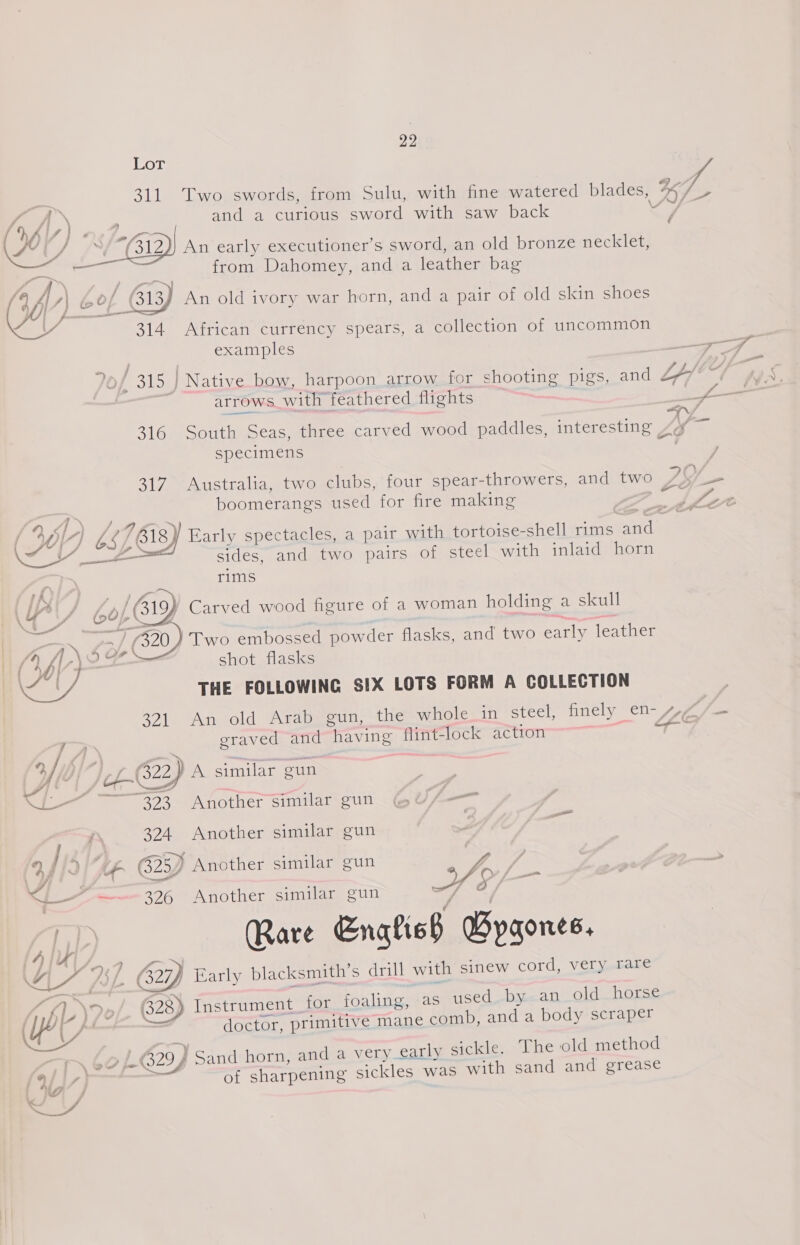 22
Lot
311 Two swords, from Sulu, with fine watered blades,
and a curious sword with saw back
312 An early executioner's sword, an old bronze necklet,
from Dahomey, and a leather bag
313 An old ivory war horn, and a pair of old skin shoes
314 African currency spears, a collection of uncommon
examples
315 Native bow, harpoon arrow for shooting pigs, and
arrows with feathered flights
316 South Seas, three carved wood paddles, interesting
specimens
317 Australia, two clubs, four spear-throwers, and two
boomerangs used for fire making
318 Early spectacles, a pair with tortoise-shell rims and
sides, and two pairs of steel with inlaid horn
rims
319 Carved wood figure of a woman holding a skull
320 Two embossed powder flasks, and two early leather
shot flasks
THE FOLLOWING SIX LOTS FORM A COLLECTION
321 An old Arab gun, the whole in steel, finely en-
graved and having flint-lock action
322 A similar gun
323 Another similar gun
324 Another similar gun
325 Another similar gun
326 Another similar gun
Rare English Bygones.
327 Early blacksmith's drill with sinew cord, very rare
328 Instrument for foaling, as used by an old horse
doctor, primitive mane comb, and a body scraper
329 Sand horn, and a very early sickle. The old method
of sharpening sickles was with sand and grease